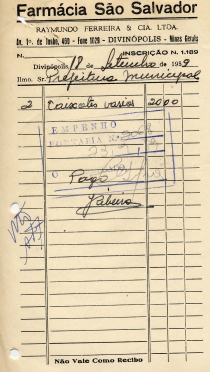 Farmácia São Salvador
RAYMUNDO FERREIRA & CIA. LTDA.
Av. 1º. de Junho, 450 - Fone 1028 - DIVINÓPOLIS - Minas Gerais
N. INSCRIÇÃO N. 1.189
Divinópolis 18 de Setembro de 1959
Ilmo. Sr. Prefeitura Municipal
2 Caixotes vasios 20,00
EMPENHO
PORTARIA N.
Pago
Não Vale Como Recibo